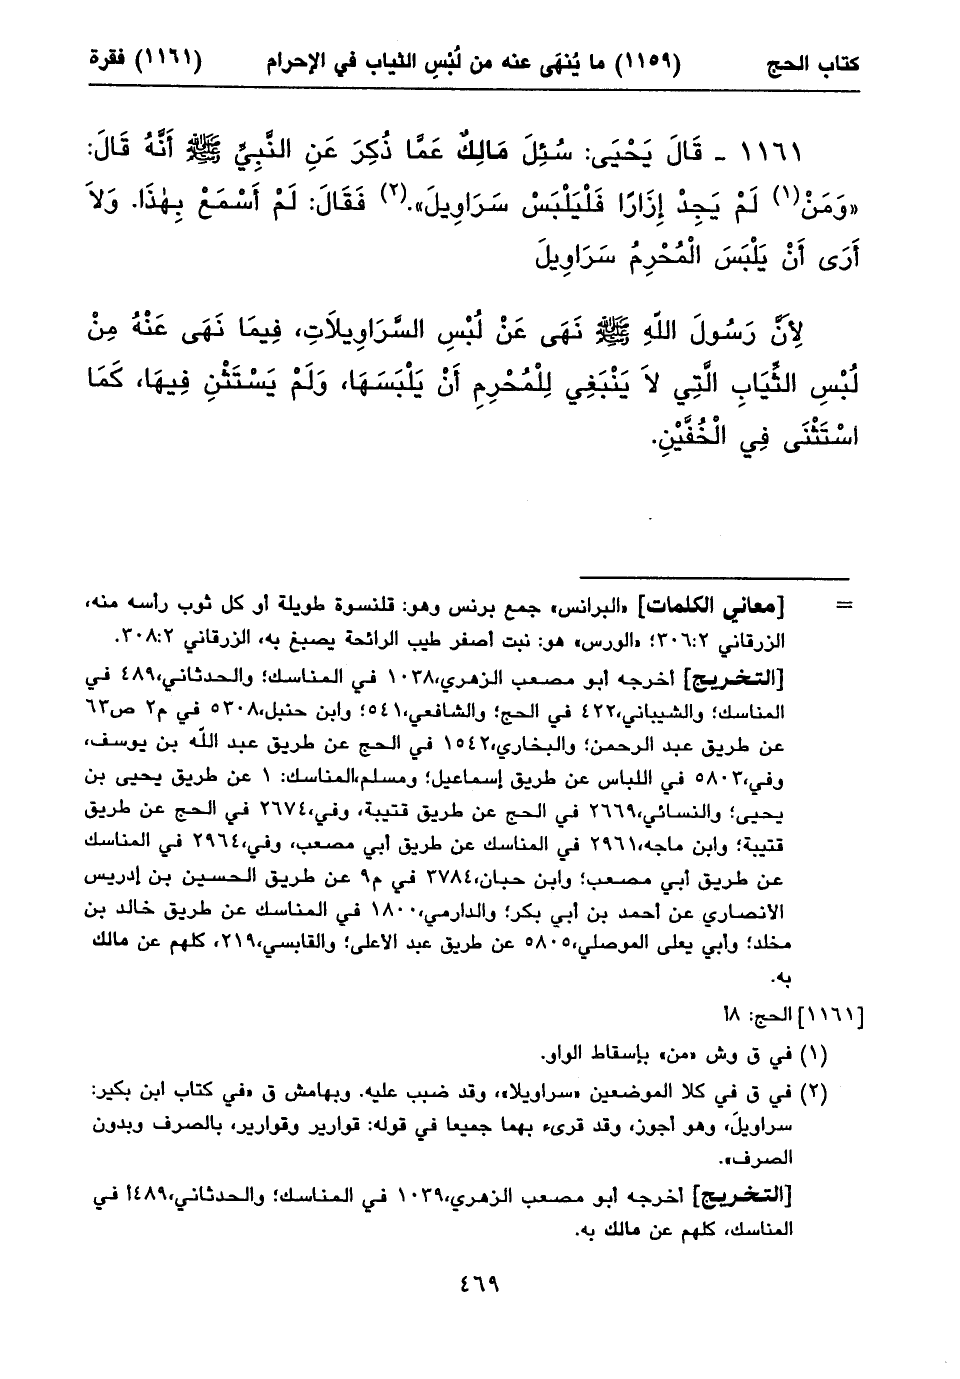 كتاب الحج (١١٥٩) ما يُنهَى عنه من لُبْسِ الثياب في الإحرام (١١٦١) فقرة
١١٦١ - قَالَ يَحْيَى: سُئِلَ مَالِكٌ عَمَّا ذُكِرَ عَنِ النَّبِيِّ ﷺ أَنَّهُ قَالَ:
«وَمَنْ(١) لَمْ يَجِدْ إِزَارًا فَلْيَلْبَسْ سَرَاوِيلَ».(٢) فَقَالَ: لَمْ أَسْمَعْ بِهٰذَا. وَلاَ
أَرَى أَنْ يَلْبَسَ الْمُحْرِمُ سَرَاوِيلَ
لِأَنَّ رَسُولَ اللّهِ ﷺ نَهَى عَنْ لُبْسِ السَّرَاوِيلاَتِ، فِيمَا نَهَى عَنْهُ مِنْ
لُبْسِ الثِّيَابِ الَّتِي لاَ يَنْبَغِي لِلْمُحْرِمِ أَنْ يَلْبَسَهَا، وَلَمْ يَسْتَثْنِ فِيهَا، كَمَا
اسْتَثْنَى فِي الْخُفَّيْنِ.
= [معاني الكلمات] «البرانس» جمع برنس وهو: قلنسوة طويلة أو كل ثوب رأسه منه،
الزرقاني ٣٠٦:٢؛ «الورس» هو: نبت أصفر طيب الرائحة يصبغ به، الزرقاني ٣٠٨:٢.
[التخريج] أخرجه أبو مصعب الزهري،١٠٣٨ في المناسك؛ والحدثاني،٤٨٩ في
المناسك؛ والشيباني،٤٢٢ في الحج؛ والشافعي،٥٤١؛ وابن حنبل،٥٣٠٨ في م٢ ص٦٣
عن طريق عبد الرحمن؛ والبخاري،١٥٤٢ في الحج عن طريق عبد اللّه بن يوسف،
وفي،٥٨٠٣ في اللباس عن طريق إسماعيل؛ ومسلم،المناسك: ١ عن طريق يحيى بن
يحيى؛ والنسائي،٢٦٦٩ في الحج عن طريق قتيبة، وفي،٢٦٧٤ في الحج عن طريق
قتيبة؛ وابن ماجه،٢٩٦١ في المناسك عن طريق أبي مصعب، وفي،٢٩٦٤ في المناسك
عن طريق أبي مصعب؛ وابن حبان،٣٧٨٤ في م٩ عن طريق الحسين بن إدريس
الانصاري عن أحمد بن أبي بكر؛ والدارمي،١٨٠٠ في المناسك عن طريق خالد بن
مخلد؛ وأبي يعلى الموصلي،٥٨٠٥ عن طريق عبد الاعلى؛ والقابسي،٢١٩، كلهم عن مالك
به.
[١١٦١] الحج: ٨أ
(١) في ق وش «من» بإسقاط الواو.
(٢) في ق في كلا الموضعين «سراويلا»، وقد ضبب عليه. وبهامش ق «في كتاب ابن بكير:
سراويلَ، وهو أجون، وقد قرىء بهما جميعا في قوله: قوارير وقوارير، بالصرف وبدون
الصرف».
[التخريج] أخرجه أبو مصعب الزهري،١٠٣٩ في المناسك؛ والحدثاني،٤٨٩أ في
المناسك، كلهم عن مالك به.
٤٦٩